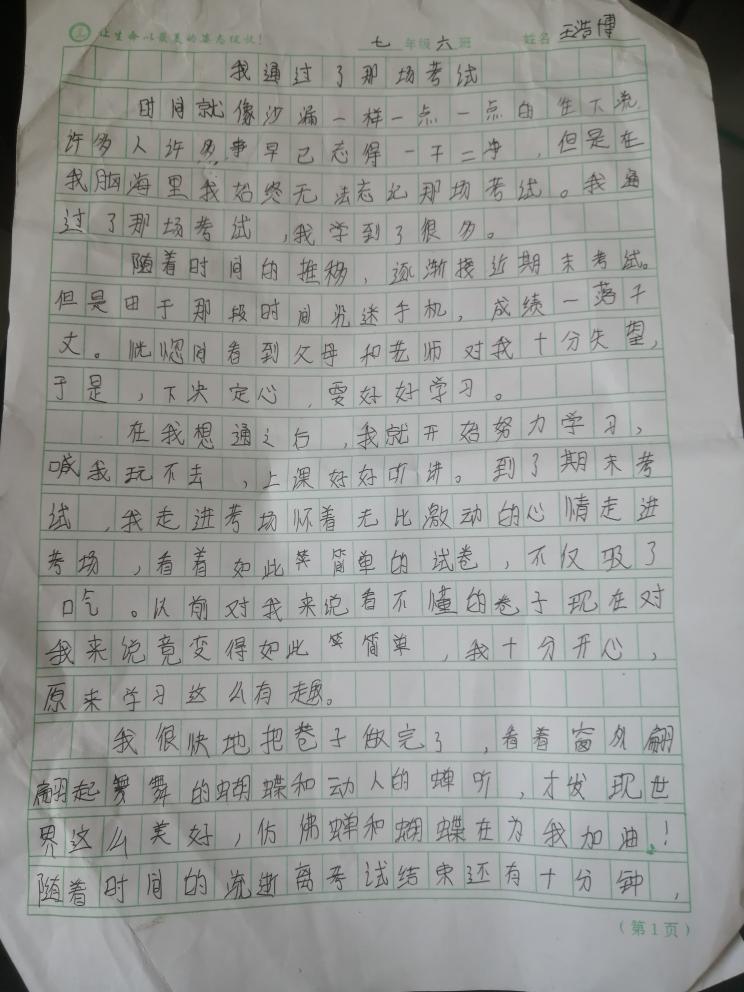 让生命以最美的姿态绽放!
七 年级 六 班 姓名 王浩博
我通过了那场考试
时间就像沙漏一样一点一点的往下流
许多人许多事早已忘得一干二净,但是在
我脑海里我始终无法忘记那场考试。我通
过了那场考试,我学到了很多。
随着时间的推移,逐渐接近期末考试。
但是由于那段时间沉迷手机,成绩一落千
丈。恍惚间看到父母和老师对我十分失望,
于是,下决定心,要好好学习。
在我想通之后,我就开始努力学习,
喊我玩不去,上课好好听讲。到了期末考
试,我走进考场怀着无比激动的心情走进
考场,看着如此简单的试卷,不仅吸了
口气。以前对我来说看不懂的卷子现在对
我来说竟变得如此简单,我十分开心,
原来学习这么有趣。
我很快地把卷子做完了,看着窗外翩
翩起舞的蝴蝶和动人的蝉听,才发现世
界这么美好,仿佛蝉和蝴蝶在为我加油!
随着时间的流逝离考试结束还有十分钟,
(第1页)